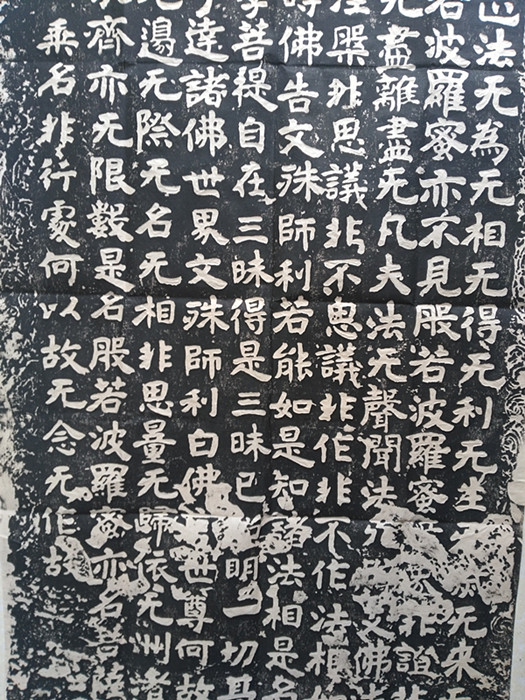 法无為无相无得无利无生无滅无来
若波羅蜜亦不見般若波羅蜜非證
无盡離盡无凡夫法无聲聞法无支佛
涅槃非思議非不思議非作非不作法相
時佛告文殊師利若能如是知諸法相是名
學菩提自在三昧得是三昧已照明一切甚
了達諸佛世界文殊師利白佛言世尊何故
邊无際无名无相非思量无歸依无洲渚
齊亦无限數是名般若波羅蜜亦名菩薩
乘名非行處何以故无念无作故